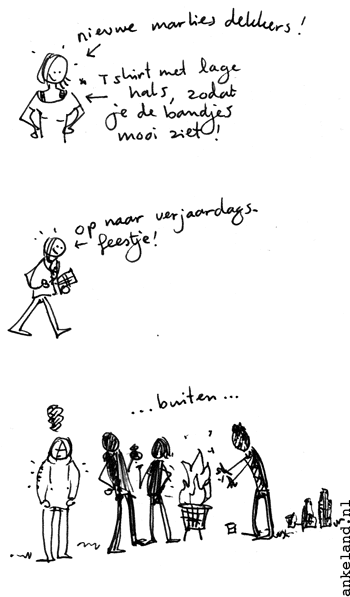 nieuwe marlies dekkers!
* Tshirt met lage
hals, zodat
je de bandjes
mooi ziet!
op naar verjaardags-
feestje!
...buiten...
ankeland.nl